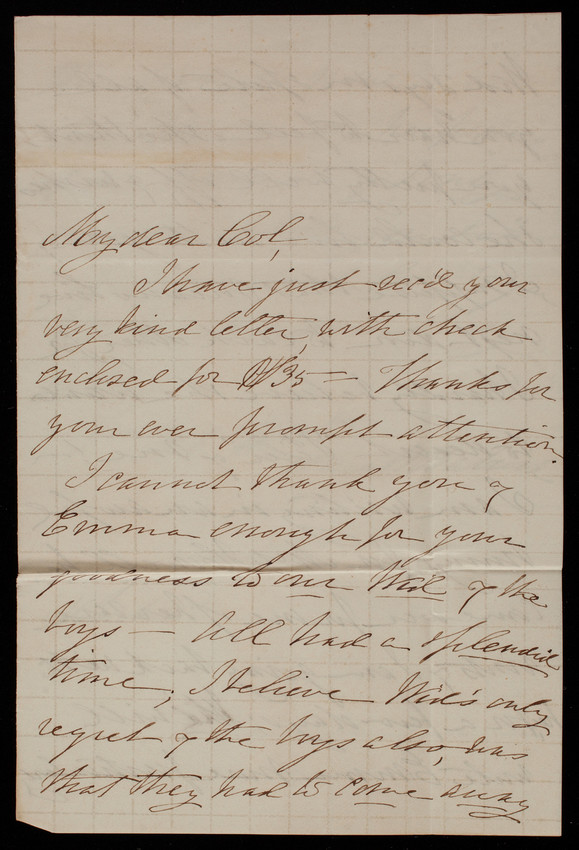 My dear Col,
I have just rec'd your
very kind letter, with check
enclosed for $35 — Thanks for
your ever prompt attention.
I cannot thank you &
Emma enough for your
goodness to our Wil & the
boys — All had a splendid
time, I believe Wil's only
regret & the boys also, was
that they had to come away